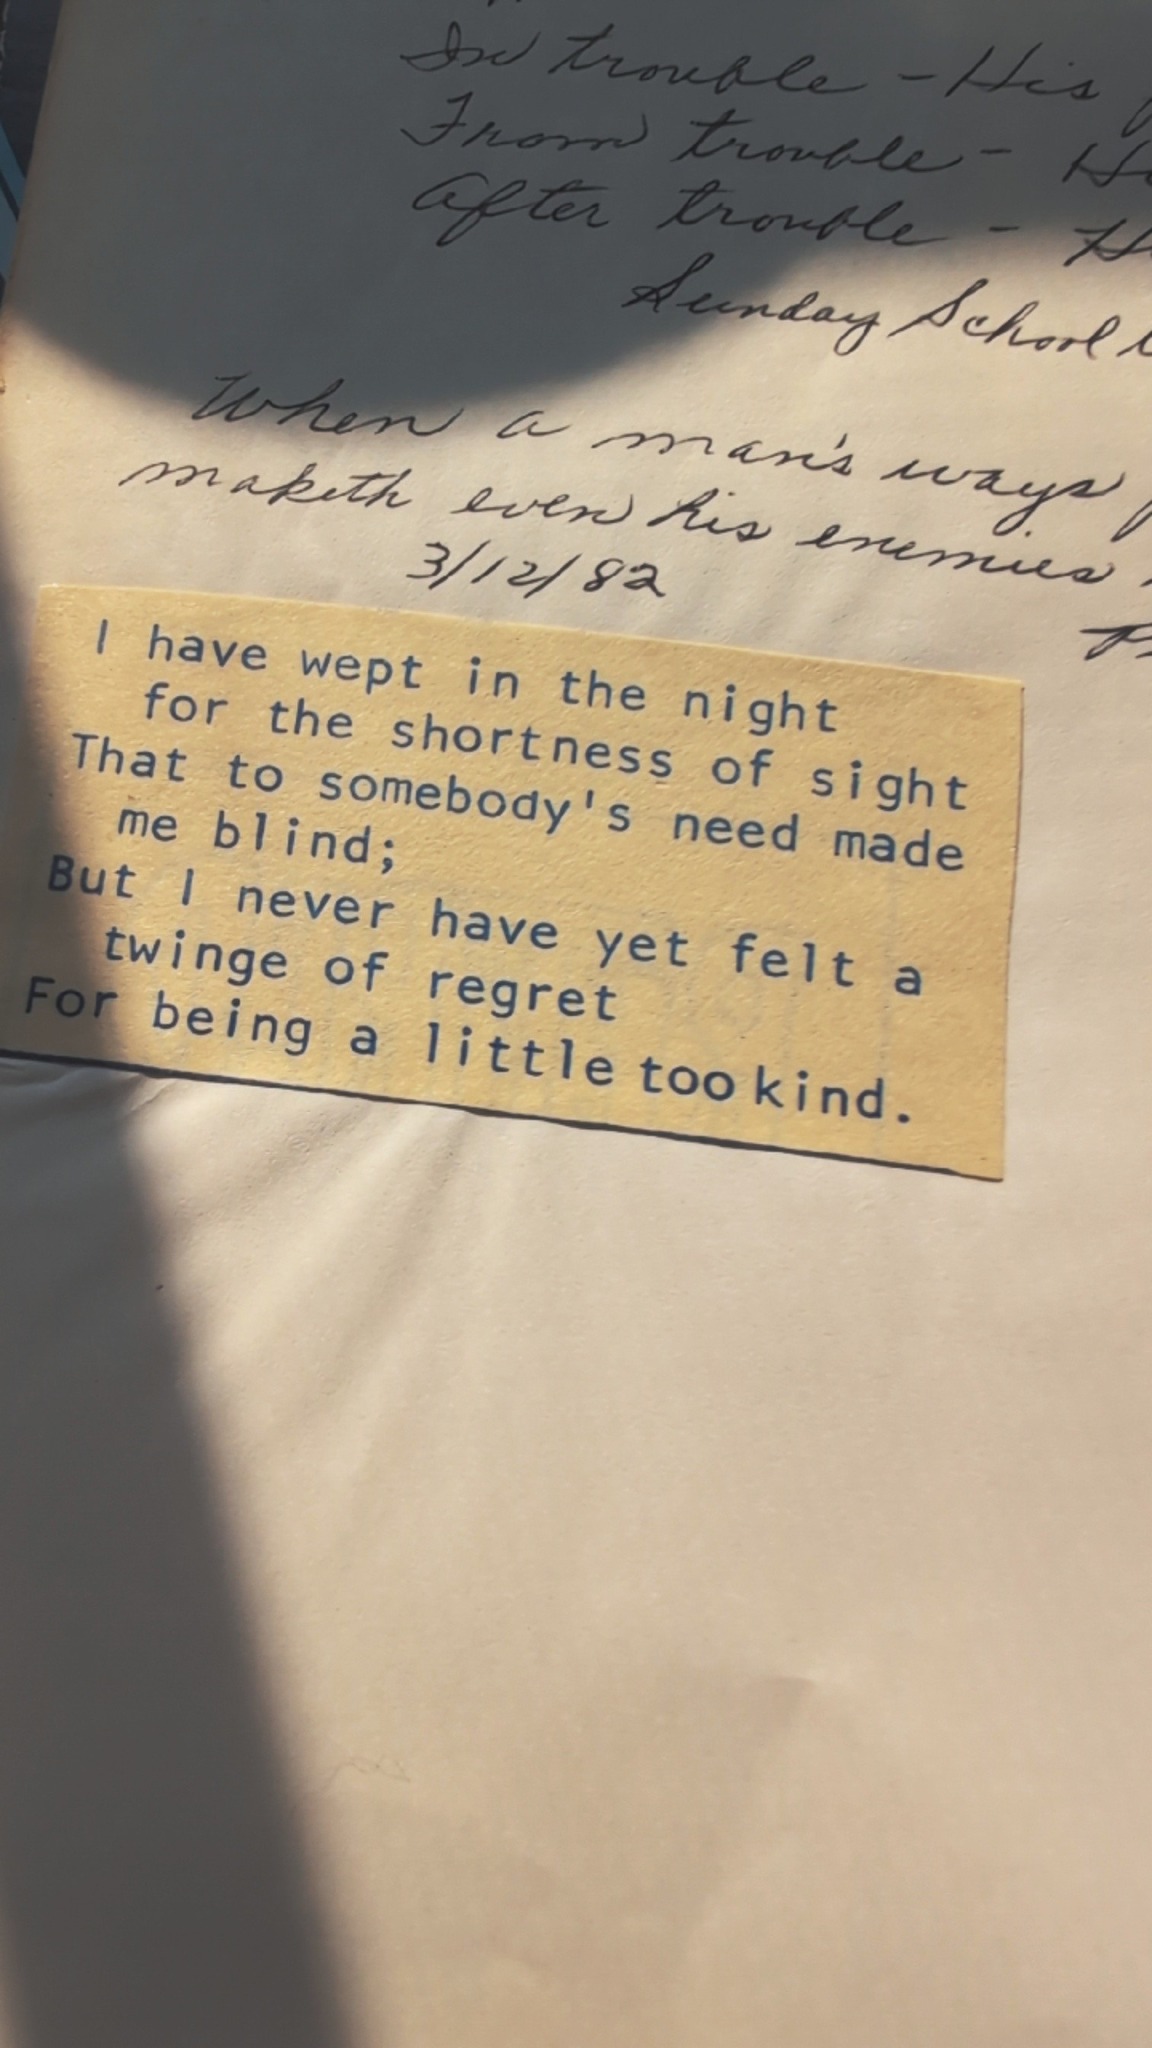 In trouble - His
From trouble -
After trouble -
Sunday School
When a man's ways
maketh even his enemies
3/12/82
I have wept in the night
for the shortness of sight
That to somebody's need made
me blind;
But I never have yet felt a
twinge of regret
For being a little too kind.